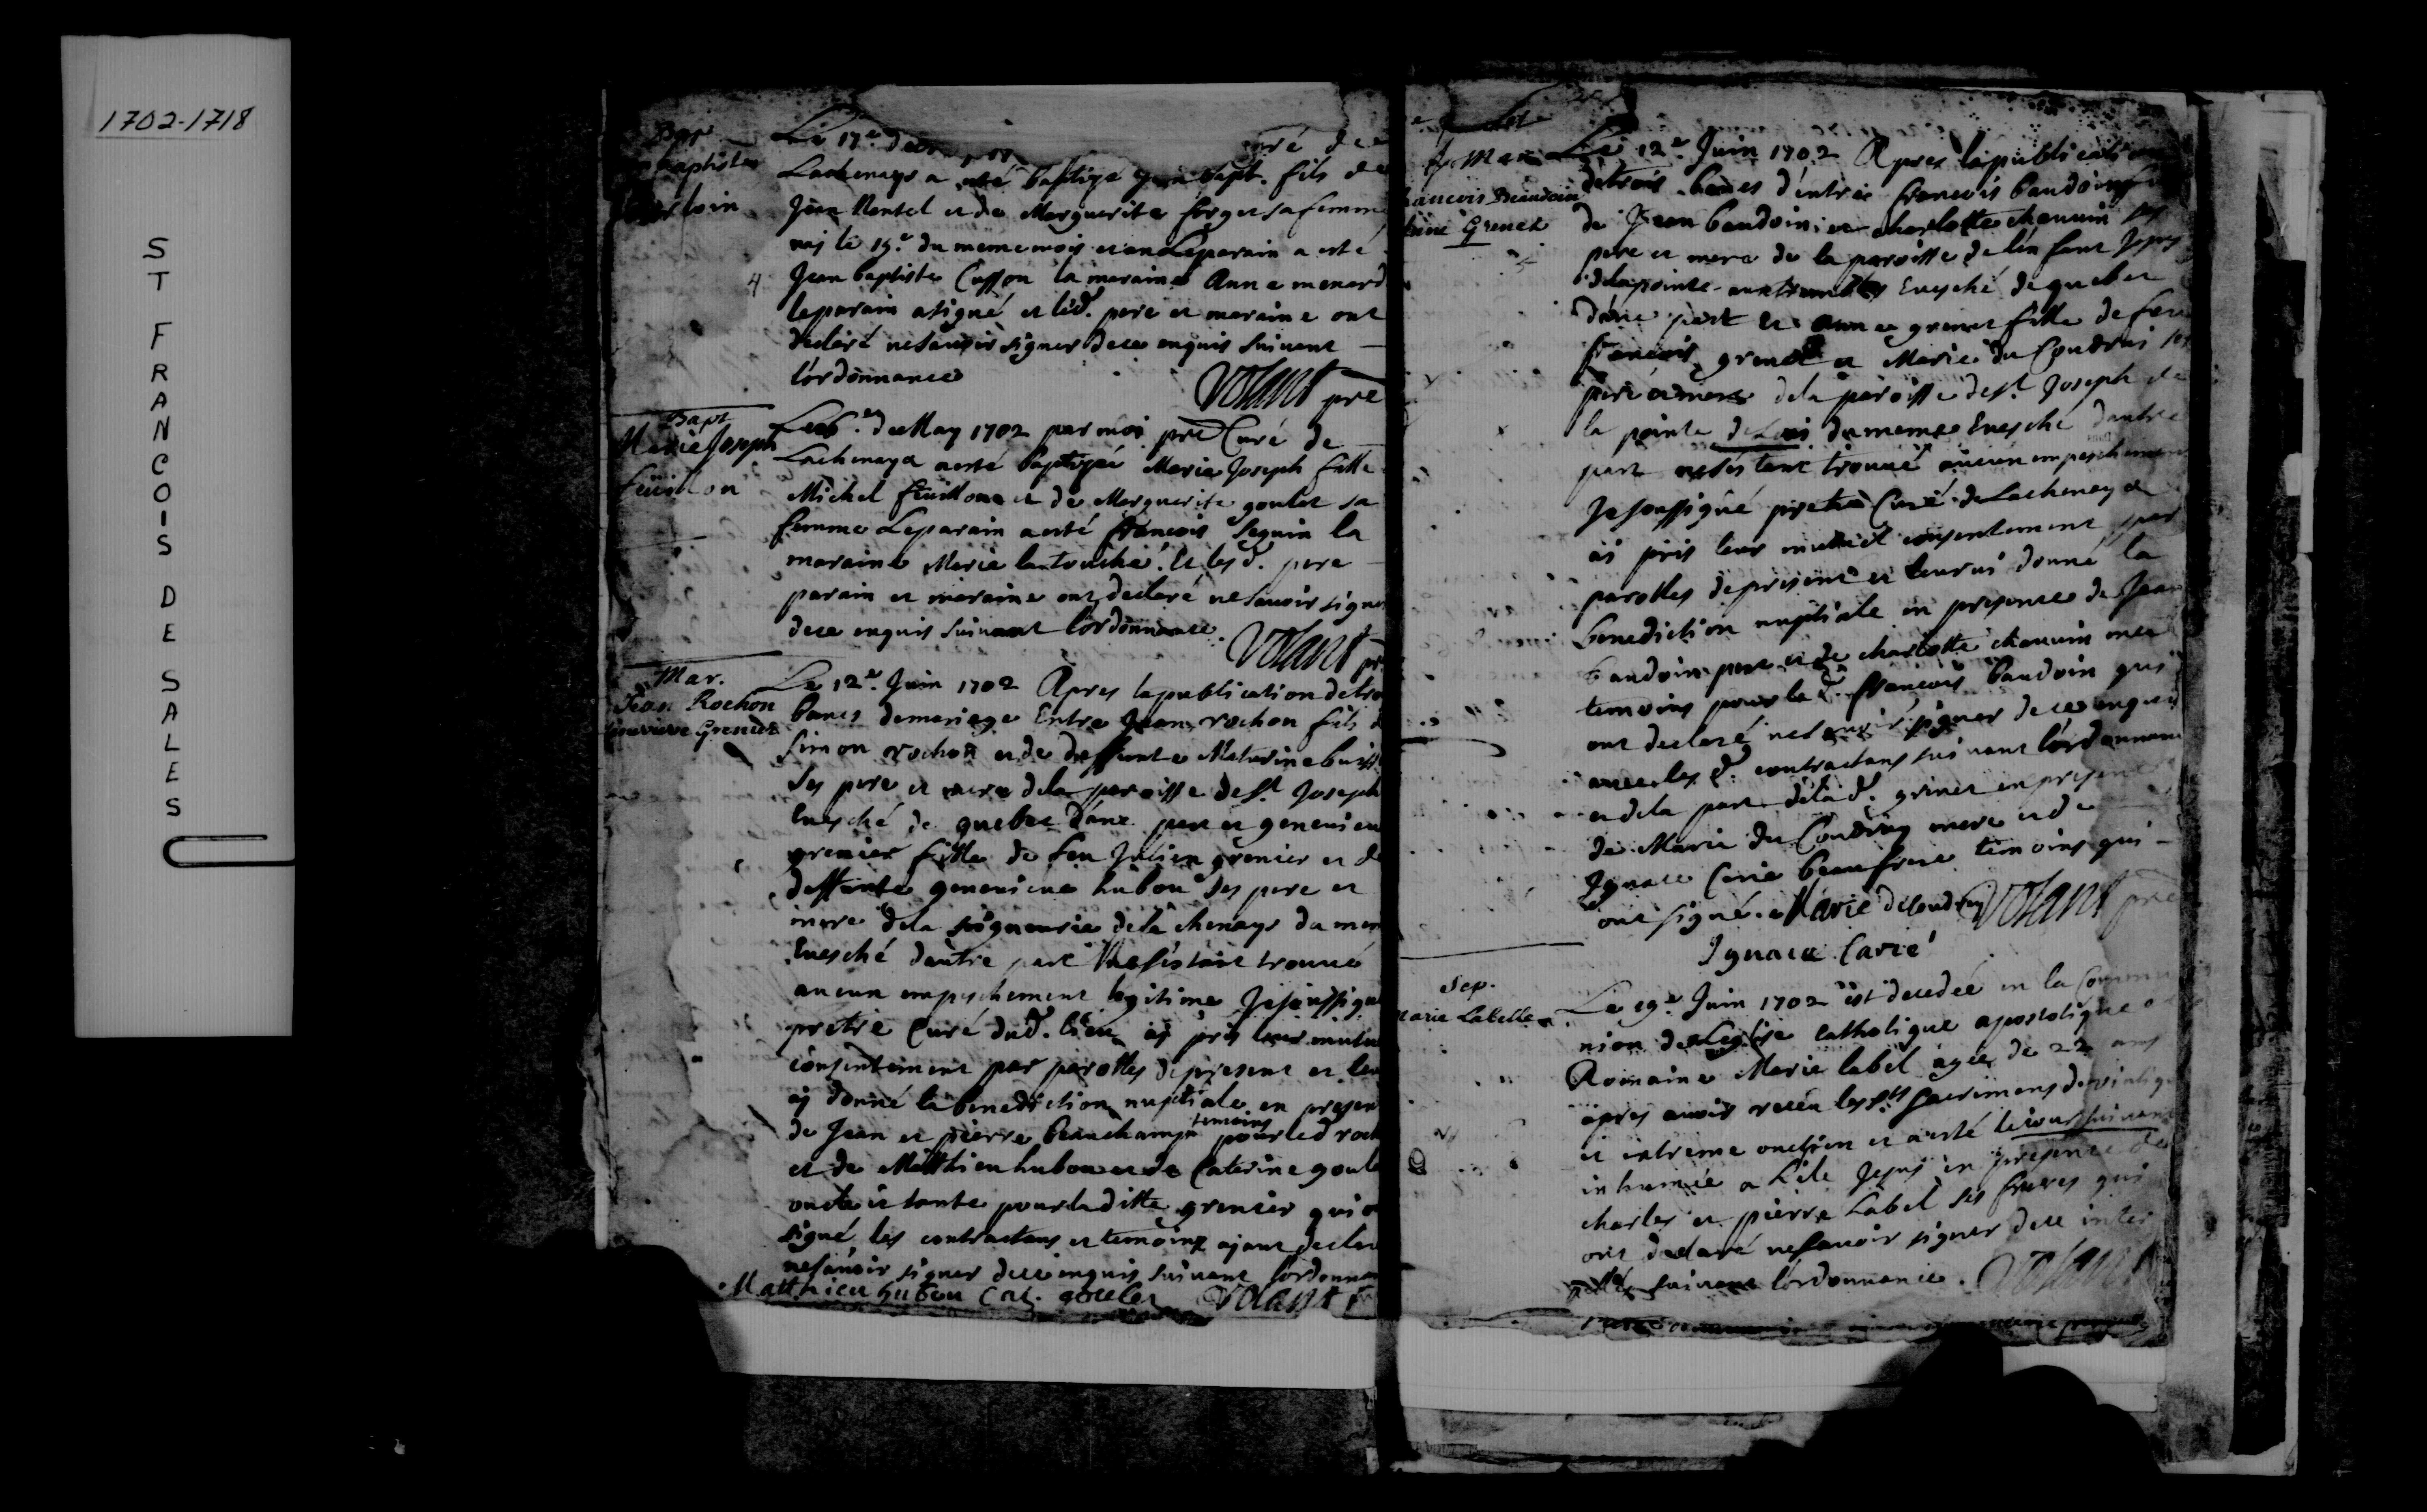 1702-1718
ST FRANCOIS DE SALES
Bap
baptiste
Le 17e
Lachenaye a esté baptizé Jean bapt. fils de
Jean Mentel et de Marguerite forget sa femme
naj le 15e du meme mois et an Le parain a esté
4 Jean baptiste Cusson la maraine Anne menard
le parain a signé et led. pere et maraine ont
declaré ne savoir signer de ce enquis suivant
l'ordonnance
Volant pre
Bapt
Marie Joseph
feüillon
Le de May 1702 par moi pre Curé de
Lachenaya a esté baptizée Marie Joseph fille
Michel feüillon et de Marguerite goulet sa
femme Le parain a esté francois Seguin la
maraine Marie latouche. Et lesd. pere
parain et maraine ont declaré ne savoir signer
de ce enquis suivant l'ordonnance.
Volant pr
Mar.
Jean Rochon
Genevieve Grenier
Le 12e. Juin 1702 Apres la publication de tro
bancs de mariage Entre Jean rochon fils d
Simon rochon et de deffunte Maturine buiss
Ses pere et mere de la paroisse de St. Joseph
Evesché de quebec d'une part et genevieu
grenier fille de feu Julien grenier et d
deffunte genevieve hubou Ses pere et
mere de la seigneurie de la chenaye du mem
Evesché d'autre part Ne s'estant trouvé
aucun empeschement legitime Je soussigné
pretre Curé dud. lieu aj pris leur mutu
consentement par parolles de present et leu
aj donné la benediction nuptiale en presen
de Jean et pierre beauchamp temoins pour led roch
et de Matthieu hubou et de Caterine goule
oncle et tante pour laditte grenier qui o
signé les contractans et temoins ajant declar
ne savoir signer de ce enquis suivant l'ordonnan
Matthieu hubou Cat. goulet Volant
Mar
francois Beaudoin
Grenet
Le 12e Juin 1702 Apres la publication
de trois bancs d'entre francois baudoin
de Jean baudoin et charlotte chauvin ses
pere et mere de la paroisse de l'enfant Jesus
de la pointe aux trembles Evesché de quebec
d'une part Et anne grenet fille de feu
francois grenet et Marie du Coudrai ses
pere et mere de la paroisse de St Joseph de
la pointe de Levi du meme Evesché d'autre
part ne s'estant trouvé aucun empeschement
Je soussigné pretre Curé de Lachenaya
ai pris leur mutuel consentement par
parolles de present et leur ai donné la
benediction nuptiale en presence de Jean
baudoin pere et de charlotte chauvin mere
temoins pour le d. francois baudoin qui
ont declaré ne savoir signer de ce enquis
avec les d. contractans suivant l'ordonnance
et de la part de la d. grinet en presence
de Marie du Coudray mere et de
Ignace Carié beaufrere temoins qui
ont signé. Marie Volant pre
Ignace Carié
Sep.
Marie Labelle
Le 19e Juin 1702 est decedée en la Commu
nion de Leglise catholique apostolique
Romaine Marie label agée de 22 ans
apres avoir receu les sts sacremens de viatique
et extreme onction et a esté le iour suivant
inhumée a L'ile Jesus en presence de
charles et pierre Label ses freres qui
ont declaré ne savoir signer de ce inter
pellés suivant l'ordonnance. Volant